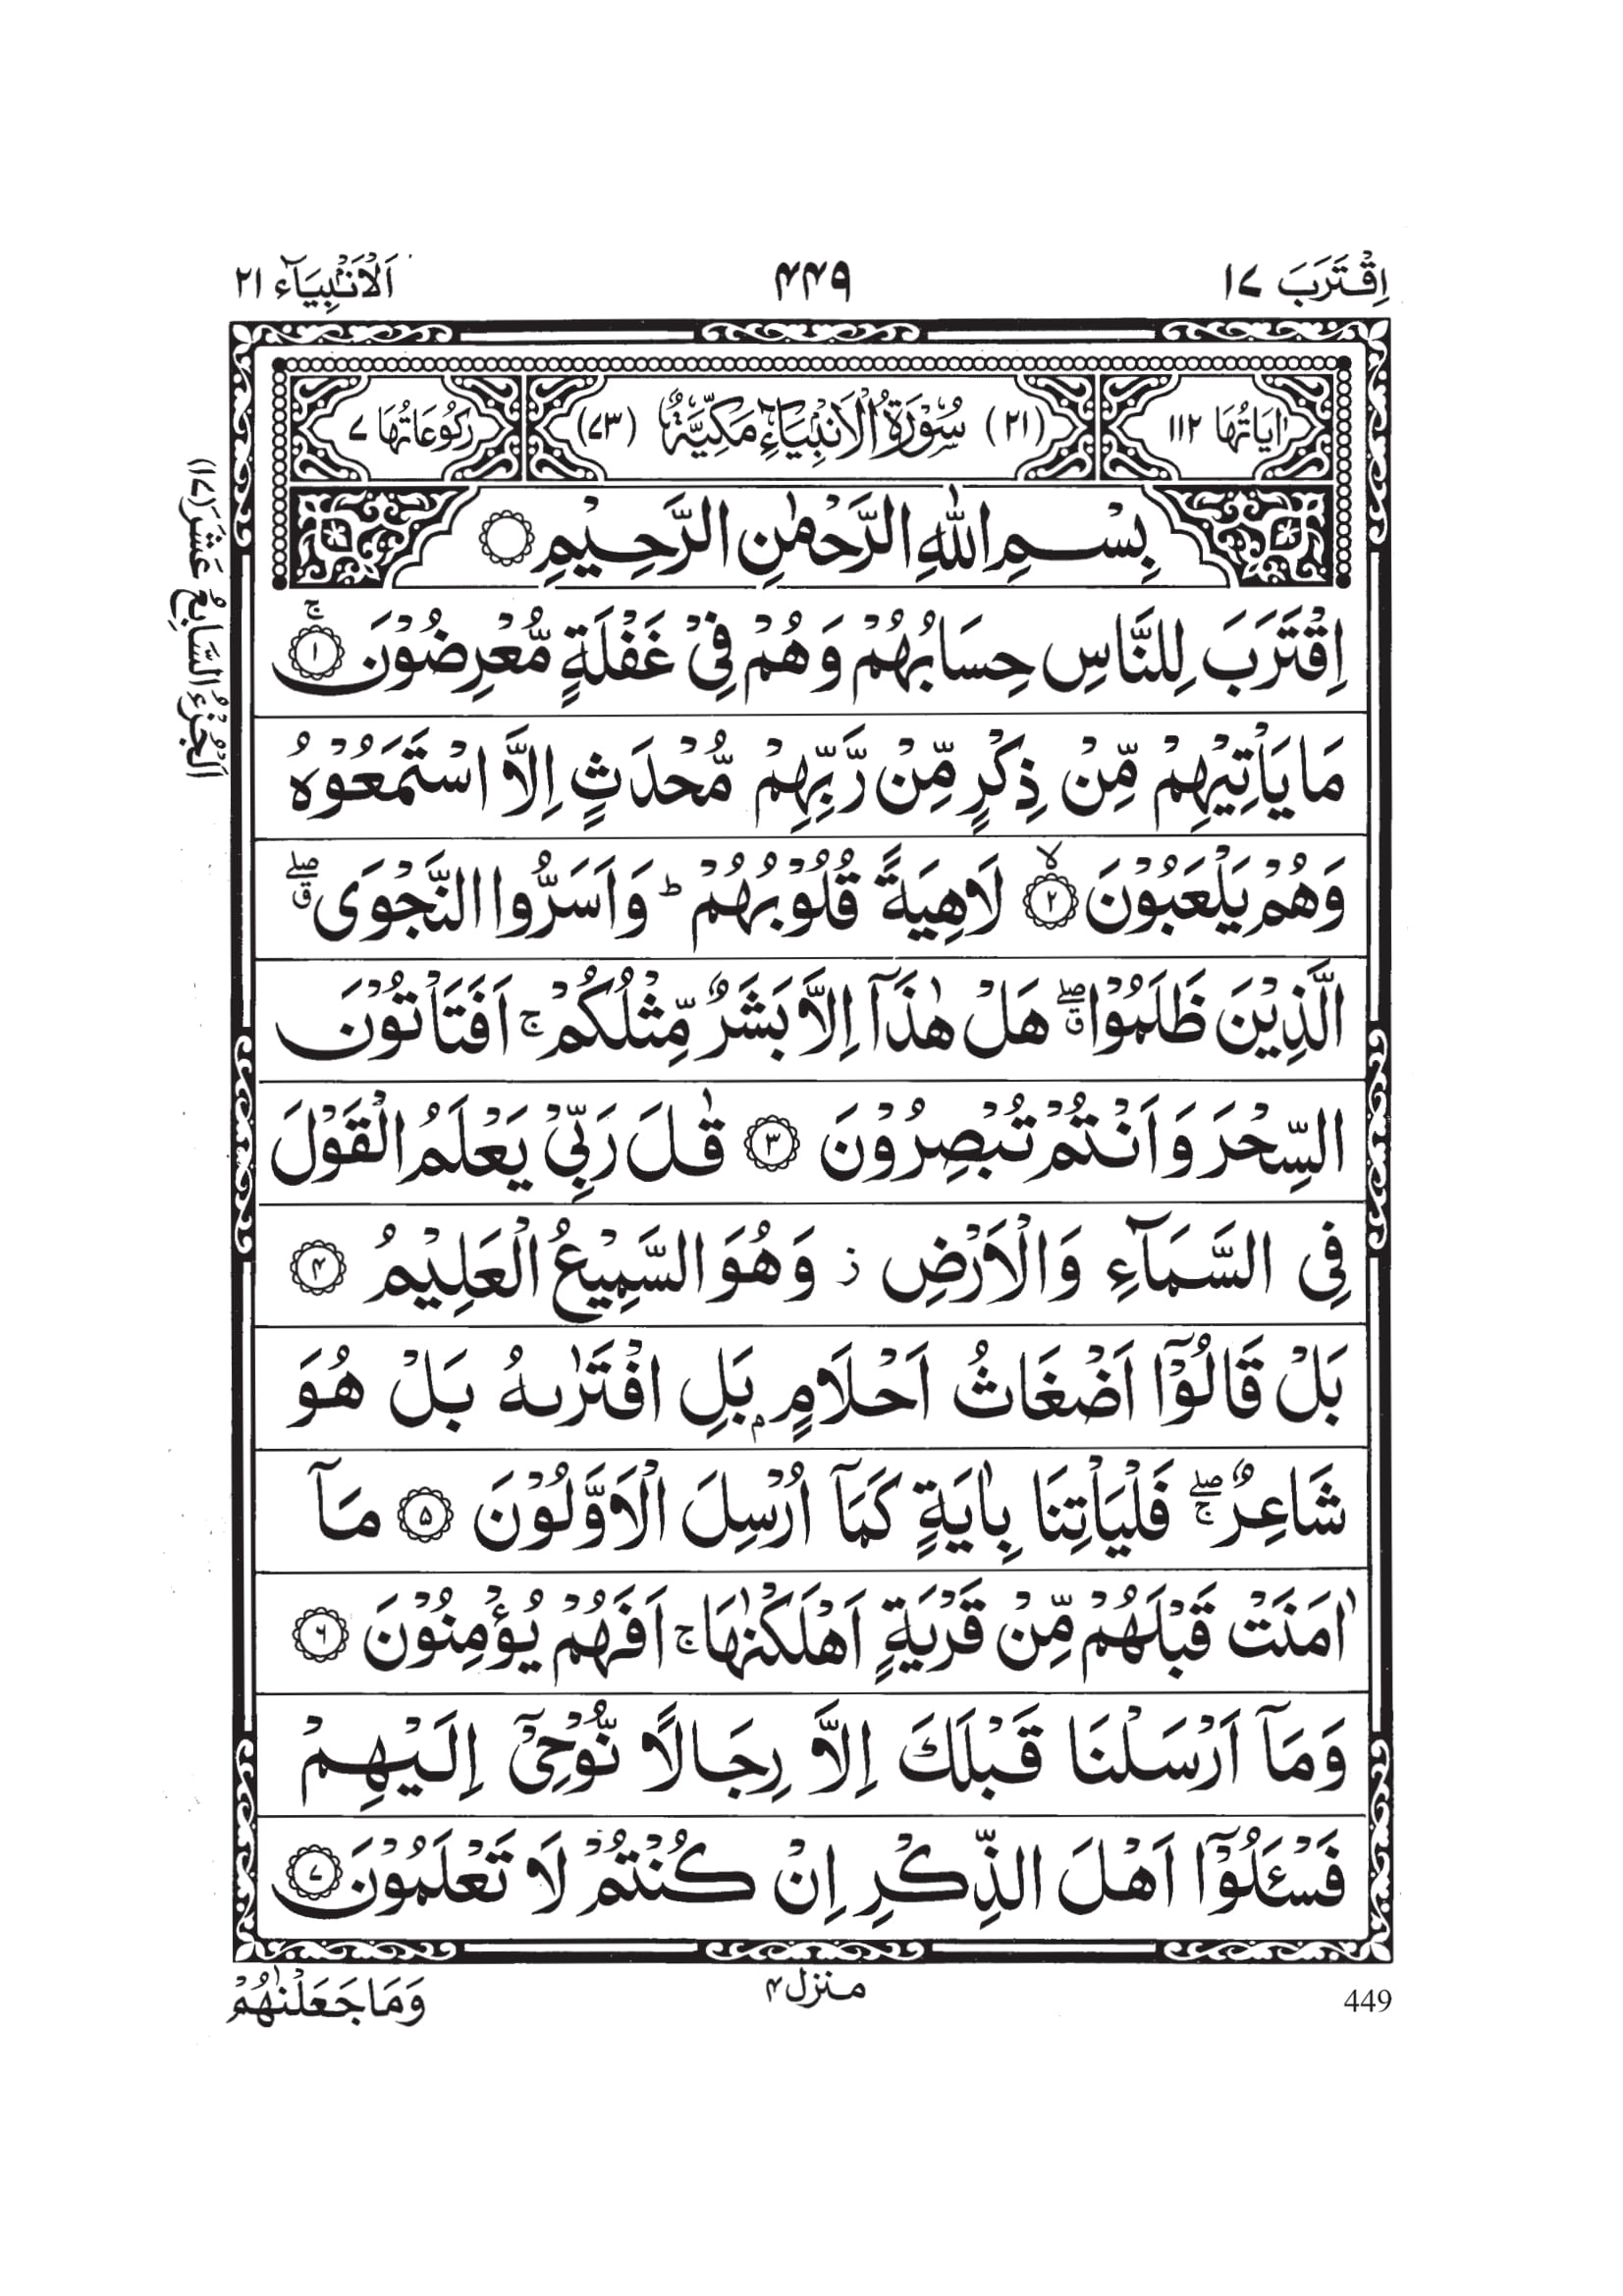 اِقْتَرَبَ ١٧
٤٤٩
اَلْاَنْۢبِيَآء ٢١
اٰيَاتُهَا ١١٢
(٢١) سُوْرَةُ الْاَنْۢبِيَآءِ مَكِّيَّةٌ (٧٣)
رُكُوْعَاتُهَا ٧
بِسْمِ اللّٰهِ الرَّحْمٰنِ الرَّحِيْمِ
اِقْتَرَبَ لِلنَّاسِ حِسَابُهُمْ وَهُمْ فِيْ غَفْلَةٍ مُّعْرِضُوْنَ ۚ ١
مَا يَاْتِيْهِمْ مِّنْ ذِكْرٍ مِّنْ رَّبِّهِمْ مُّحْدَثٍ اِلَّا اسْتَمَعُوْهُ
وَهُمْ يَلْعَبُوْنَ ۙ ٢ لَاهِيَةً قُلُوْبُهُمْ ؕ وَاَسَرُّوا النَّجْوَى ۖق
الَّذِيْنَ ظَلَمُوْا ۖق هَلْ هٰذَآ اِلَّا بَشَرٌ مِّثْلُكُمْ ۚ اَفَتَاْتُوْنَ
السِّحْرَ وَاَنْتُمْ تُبْصِرُوْنَ ٣ قٰلَ رَبِّيْ يَعْلَمُ الْقَوْلَ
فِي السَّمَآءِ وَالْاَرْضِ ز وَهُوَ السَّمِيْعُ الْعَلِيْمُ ٤
بَلْ قَالُوْٓا اَضْغَاثُ اَحْلَامٍۭ بَلِ افْتَرٰىهُ بَلْ هُوَ
شَاعِرٌ ۖۚ فَلْيَاْتِنَا بِاٰيَةٍ كَمَآ اُرْسِلَ الْاَوَّلُوْنَ ٥ مَآ
اٰمَنَتْ قَبْلَهُمْ مِّنْ قَرْيَةٍ اَهْلَكْنٰهَا ۚ اَفَهُمْ يُؤْمِنُوْنَ ٦
وَمَآ اَرْسَلْنَا قَبْلَكَ اِلَّا رِجَالًا نُّوْحِيْٓ اِلَيْهِمْ
فَسْـَٔلُوْٓا اَهْلَ الذِّكْرِ اِنْ كُنْتُمْ لَا تَعْلَمُوْنَ ٧
اَلْجُزْءُ السَّابِعُ عَشَرَ (١٧)
449
منزل ٤
وَمَا جَعَلْنٰهُمْ